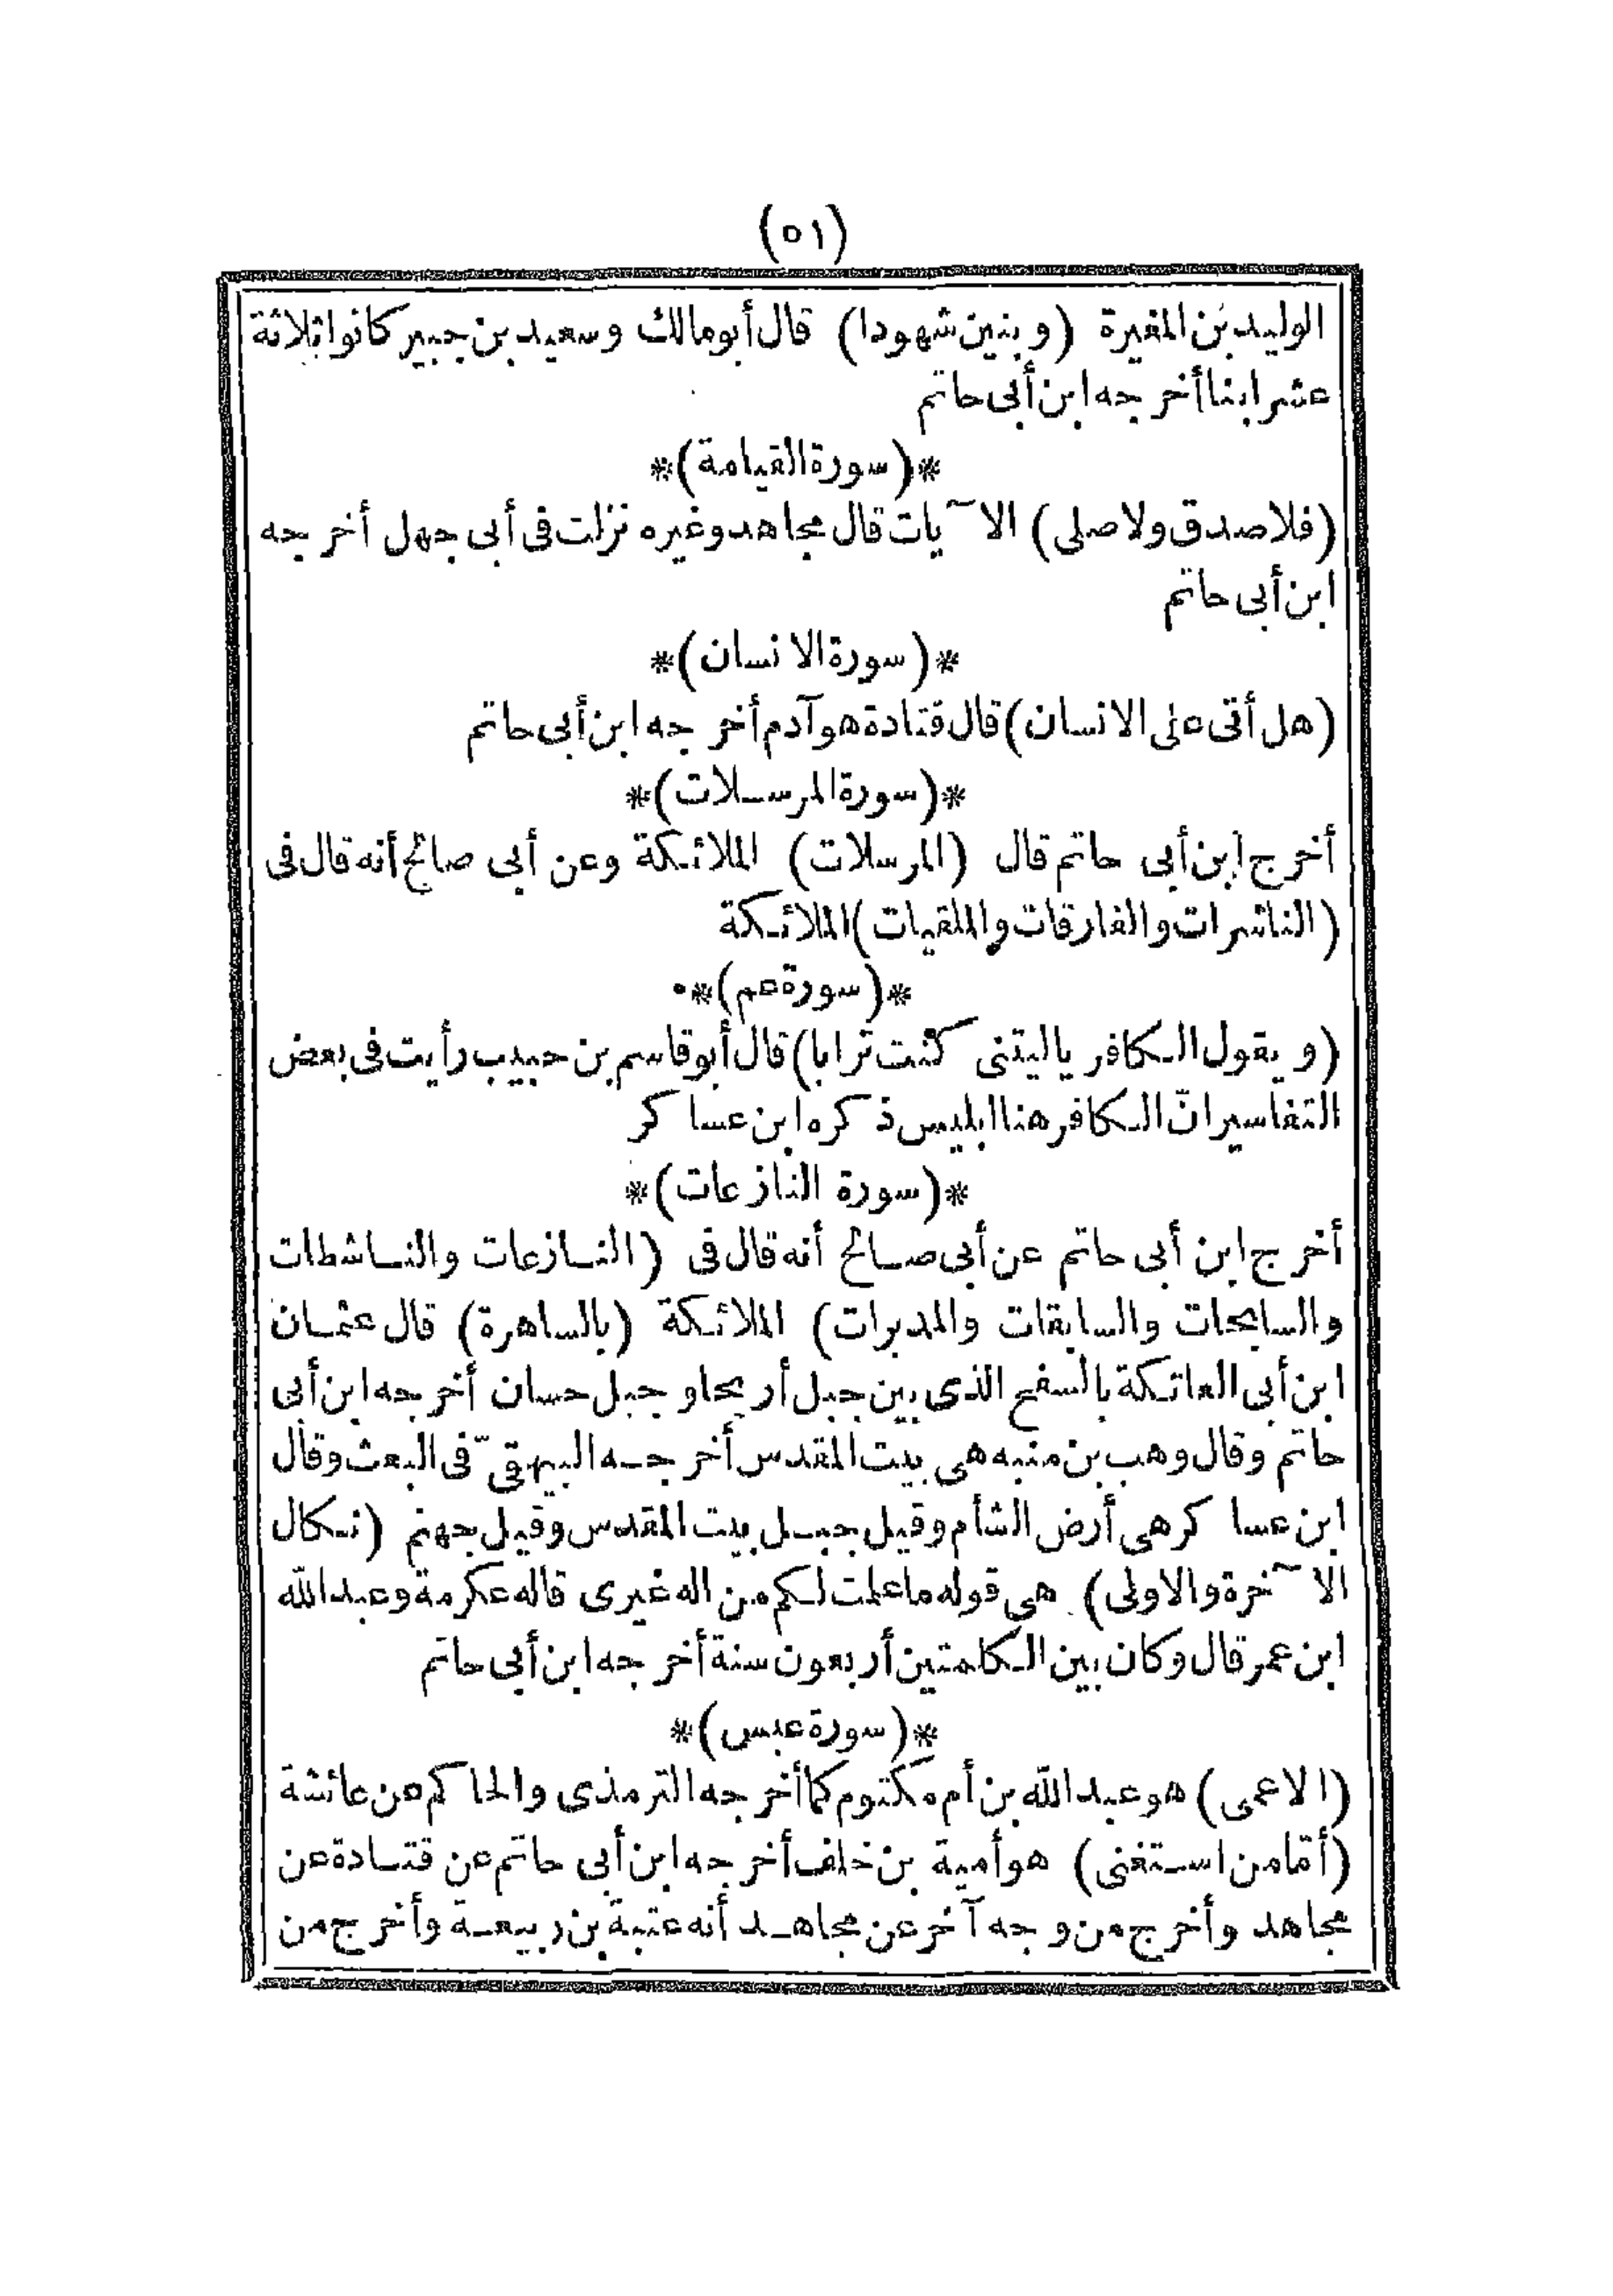 (٥١)
الوليد بن المغيرة (وبنين شهودا) قال أبو مالك وسعيد بن جبير كانوا ثلاثة
عشر ابنا أخرجه ابن أبى حاتم
*(سورة القيامة)*
(فلا صدق ولا صلى) الآيات قال مجاهد وغيره نزلت فى أبى جهل أخرجه
ابن أبى حاتم
*(سورة الانسان)*
(هل أتى على الانسان) قال قتادة هو آدم أخرجه ابن أبى حاتم
*(سورة المرسلات)*
أخرج ابن أبى حاتم قال (المرسلات) الملائكة وعن أبى صالح أنه قال فى
(الناشرات والفارقات والملقيات) الملائكة
*(سورة عم)*
(ويقول الكافر ياليتنى كنت ترابا) قال أبو قاسم بن حبيب رأيت فى بعض
التفاسير انّ الكافر هنا ابليس ذكره ابن عساكر
*(سورة النازعات)*
أخرج ابن أبى حاتم عن أبى صالح أنه قال فى (النازعات والناشطات
والسابحات والسابقات والمدبرات) الملائكة (بالساهرة) قال عثمان
ابن أبى العاتكة بالسفح الذى بين جبل أريحا وجبل حسان أخرجه ابن أبى
حاتم وقال وهب بن منبه هى بيت المقدس أخرجه البيهقىّ فى البعث وقال
ابن عساكر هى أرض الشأم وقيل جبل بيت المقدس وقيل جهنم (نكال
الآخرة والاولى) هى قوله ما علمت لكم من اله غيرى قاله عكرمة وعبد الله
ابن عمر قال وكان بين الكلمتين أربعون سنة أخرجه ابن أبى حاتم
*(سورة عبس)*
(الاعمى) هو عبد الله بن أم مكتوم كما أخرجه الترمذى والحاكم عن عائشة
(أمّا من استغنى) هو أمية بن خلف أخرجه ابن أبى حاتم عن قتادة عن
مجاهد وأخرج من وجه آخر عن مجاهد أنه عتبة بن ربيعة وأخرج من